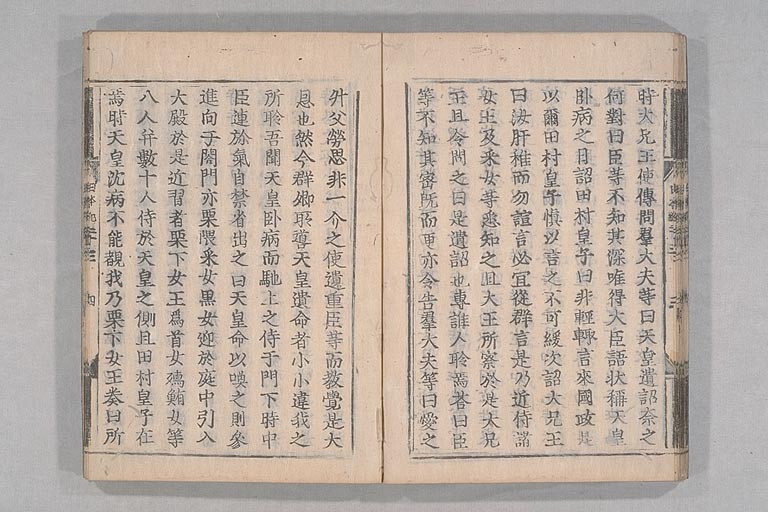 時大兄王使傳問羣大夫等曰天皇遺詔奈之
何對曰臣等不知其深唯得大臣語狀稱天皇
臥病之日詔田村皇子曰非輕輙言來國政是
以爾田村皇子慎以言之不可緩次詔大兄王
曰汝肝稚而勿諠言必宜從群言是乃近侍諸
女王及采女等悉知之且大王所察於是大兄
王且令問之曰是遺詔也專誰人聆焉荅曰臣
等不知其密既而更亦令告羣大夫等曰愛之
外父勞思非一介之使遺重臣等而敎覺是大
恩也然今群卿所噵天皇遺命者小小違我之
所聆吾聞天皇臥病而馳上之侍于門下時中
臣連弥氣自禁省出之曰天皇命以喚之則參
進向于閤門亦栗隈采女黑女迎於庭中引入
大殿於是近習者栗下女王爲首女孺鮪女等
八人幷數十人侍於天皇之側且田村皇子在
焉時天皇沈病不能覩我乃栗下女王奏曰所